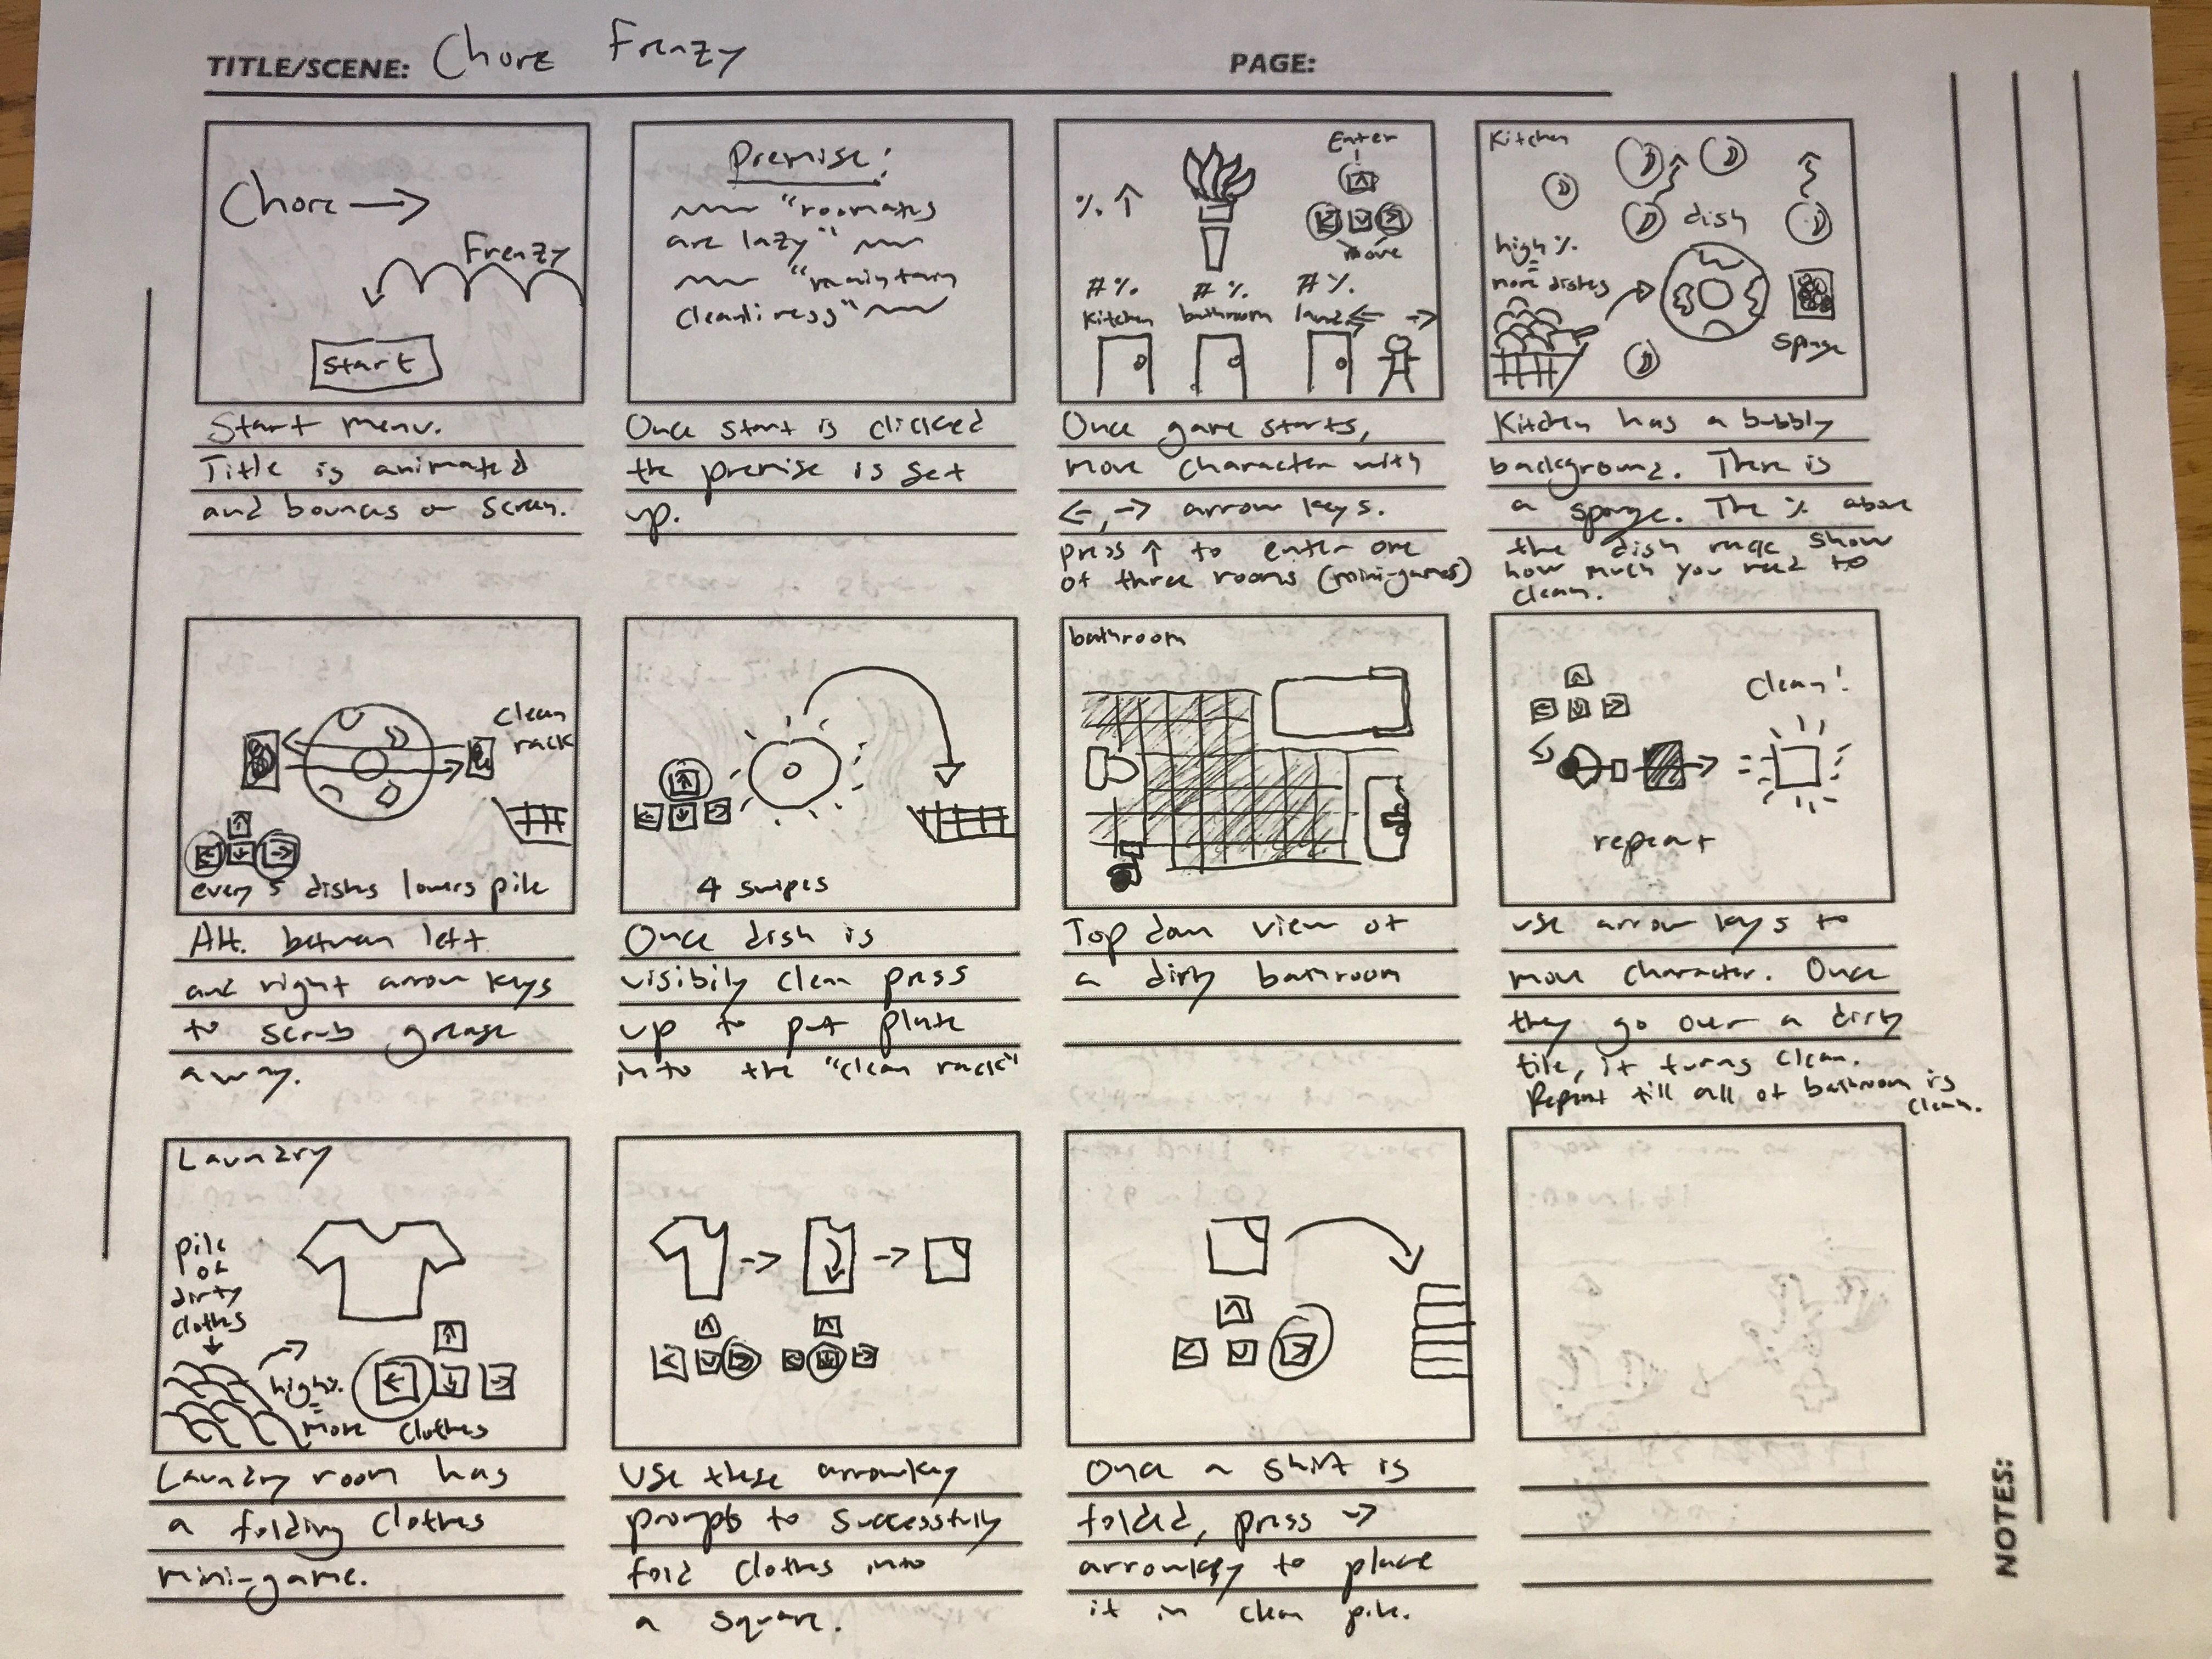 TITLE/SCENE: Chore Frenzy
PAGE:
Chore →
Frenzy
Start
Start menu.
Title is animated
and bounces on screen.
Premise:
"roomates
are lazy"
"maintain
cleanliness"
Once start is clicked
the premise is set
up.
% ↑
Enter
move
#% #% #%
Kitchen bathroom
Once game starts,
move character with
←, → arrow keys.
press ↑ to enter one
of three rooms (mini-games)
Kitchen
high %
more dishes
dish
sponge
Kitchen has a bubbly
background. There is
a sponge. The % above
the dish show
how much you need to
clean.
clean
rack
every 5 dishes lowers pile
Alt. between left
and right arrow keys
to scrub grease
away.
4 swipes
Once dish is
visibily clean press
up to put plate
into the "clean rack"
bathroom
Top down view of
a dirty bathroom
Clean!
repeat
use arrow keys to
move character. Once
they go over a dirty
tile, it turns clean.
Repeat till all of bathroom is
clean.
Laundry
pile
of
dirty
clothes
high %
more clothes
Laundry room has
a folding clothes
mini-game.
Use these arrowkey
prompts to successfully
fold clothes into
a square.
Once a shirt is
folded, press →
arrowkey to place
it in clean pile.
NOTES: